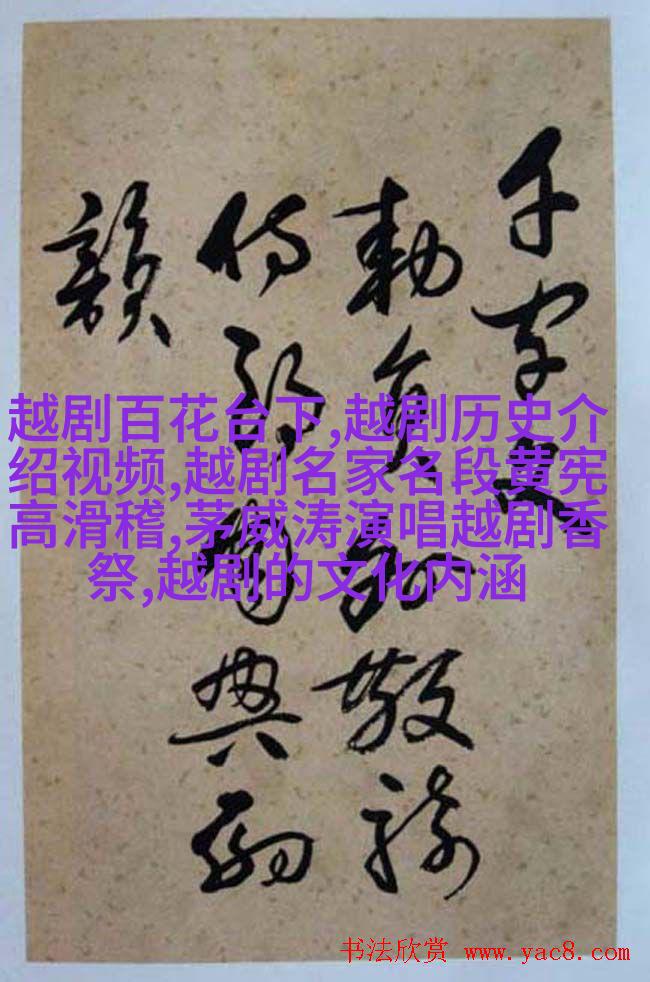 千字文
勅員外散騎
侍郎周興嗣
韻
越剧百花台下,越剧历史介
绍视频,越剧名家名段黄宪
高滑稽,茅威涛演唱越剧香
祭,越剧的文化内涵
书法欣赏 www.yac8.com